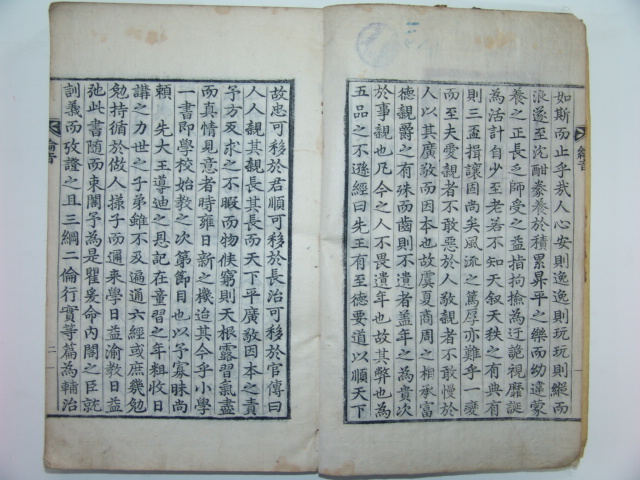 如斯而止乎哉人心安則逸逸則玩玩則縱而
浪遂至沈酣豢養於積累昇平之樂而幼違蒙
養之正長乏師受之益指拘撿為迂詭視靡誕
為活計自少至老若不知天叙天秩之有典有
則三盃揖讓固尚矣風流之篤厚亦難乎一變
而至夫愛親者不敢惡於人敬親者不敢慢於
人以其廣敬而因本也故虞夏商周之相承富
德親爵之有殊而齒則不遺者盖年之為貴次
於事親也凡今之人不畏遺年也故其弊也為
五品之不遜經曰先王有至德要道以順天下
綸音
故忠可移於君順可移於長治可移於官傳曰
人人親其親長其長而天下平廣敬因本之責
予方反求之不暇而物佚窮則天根露習氣盡
而真情見意者時雍日新之機迨其今乎小學
一書即學校始教之次第節目也以予寡昧尚
賴先大王導迪之恩記在童習之年粗收日
講之力世之子弟雖不及遍道六經或庶幾勉
勉持循於做人㨾子而邇來學日益渝教日益
弛此書隨而束閣予為是瞿爰命內閣之臣就
訓義而攷證之且三綱二倫行實等篇為輔治
綸音
二